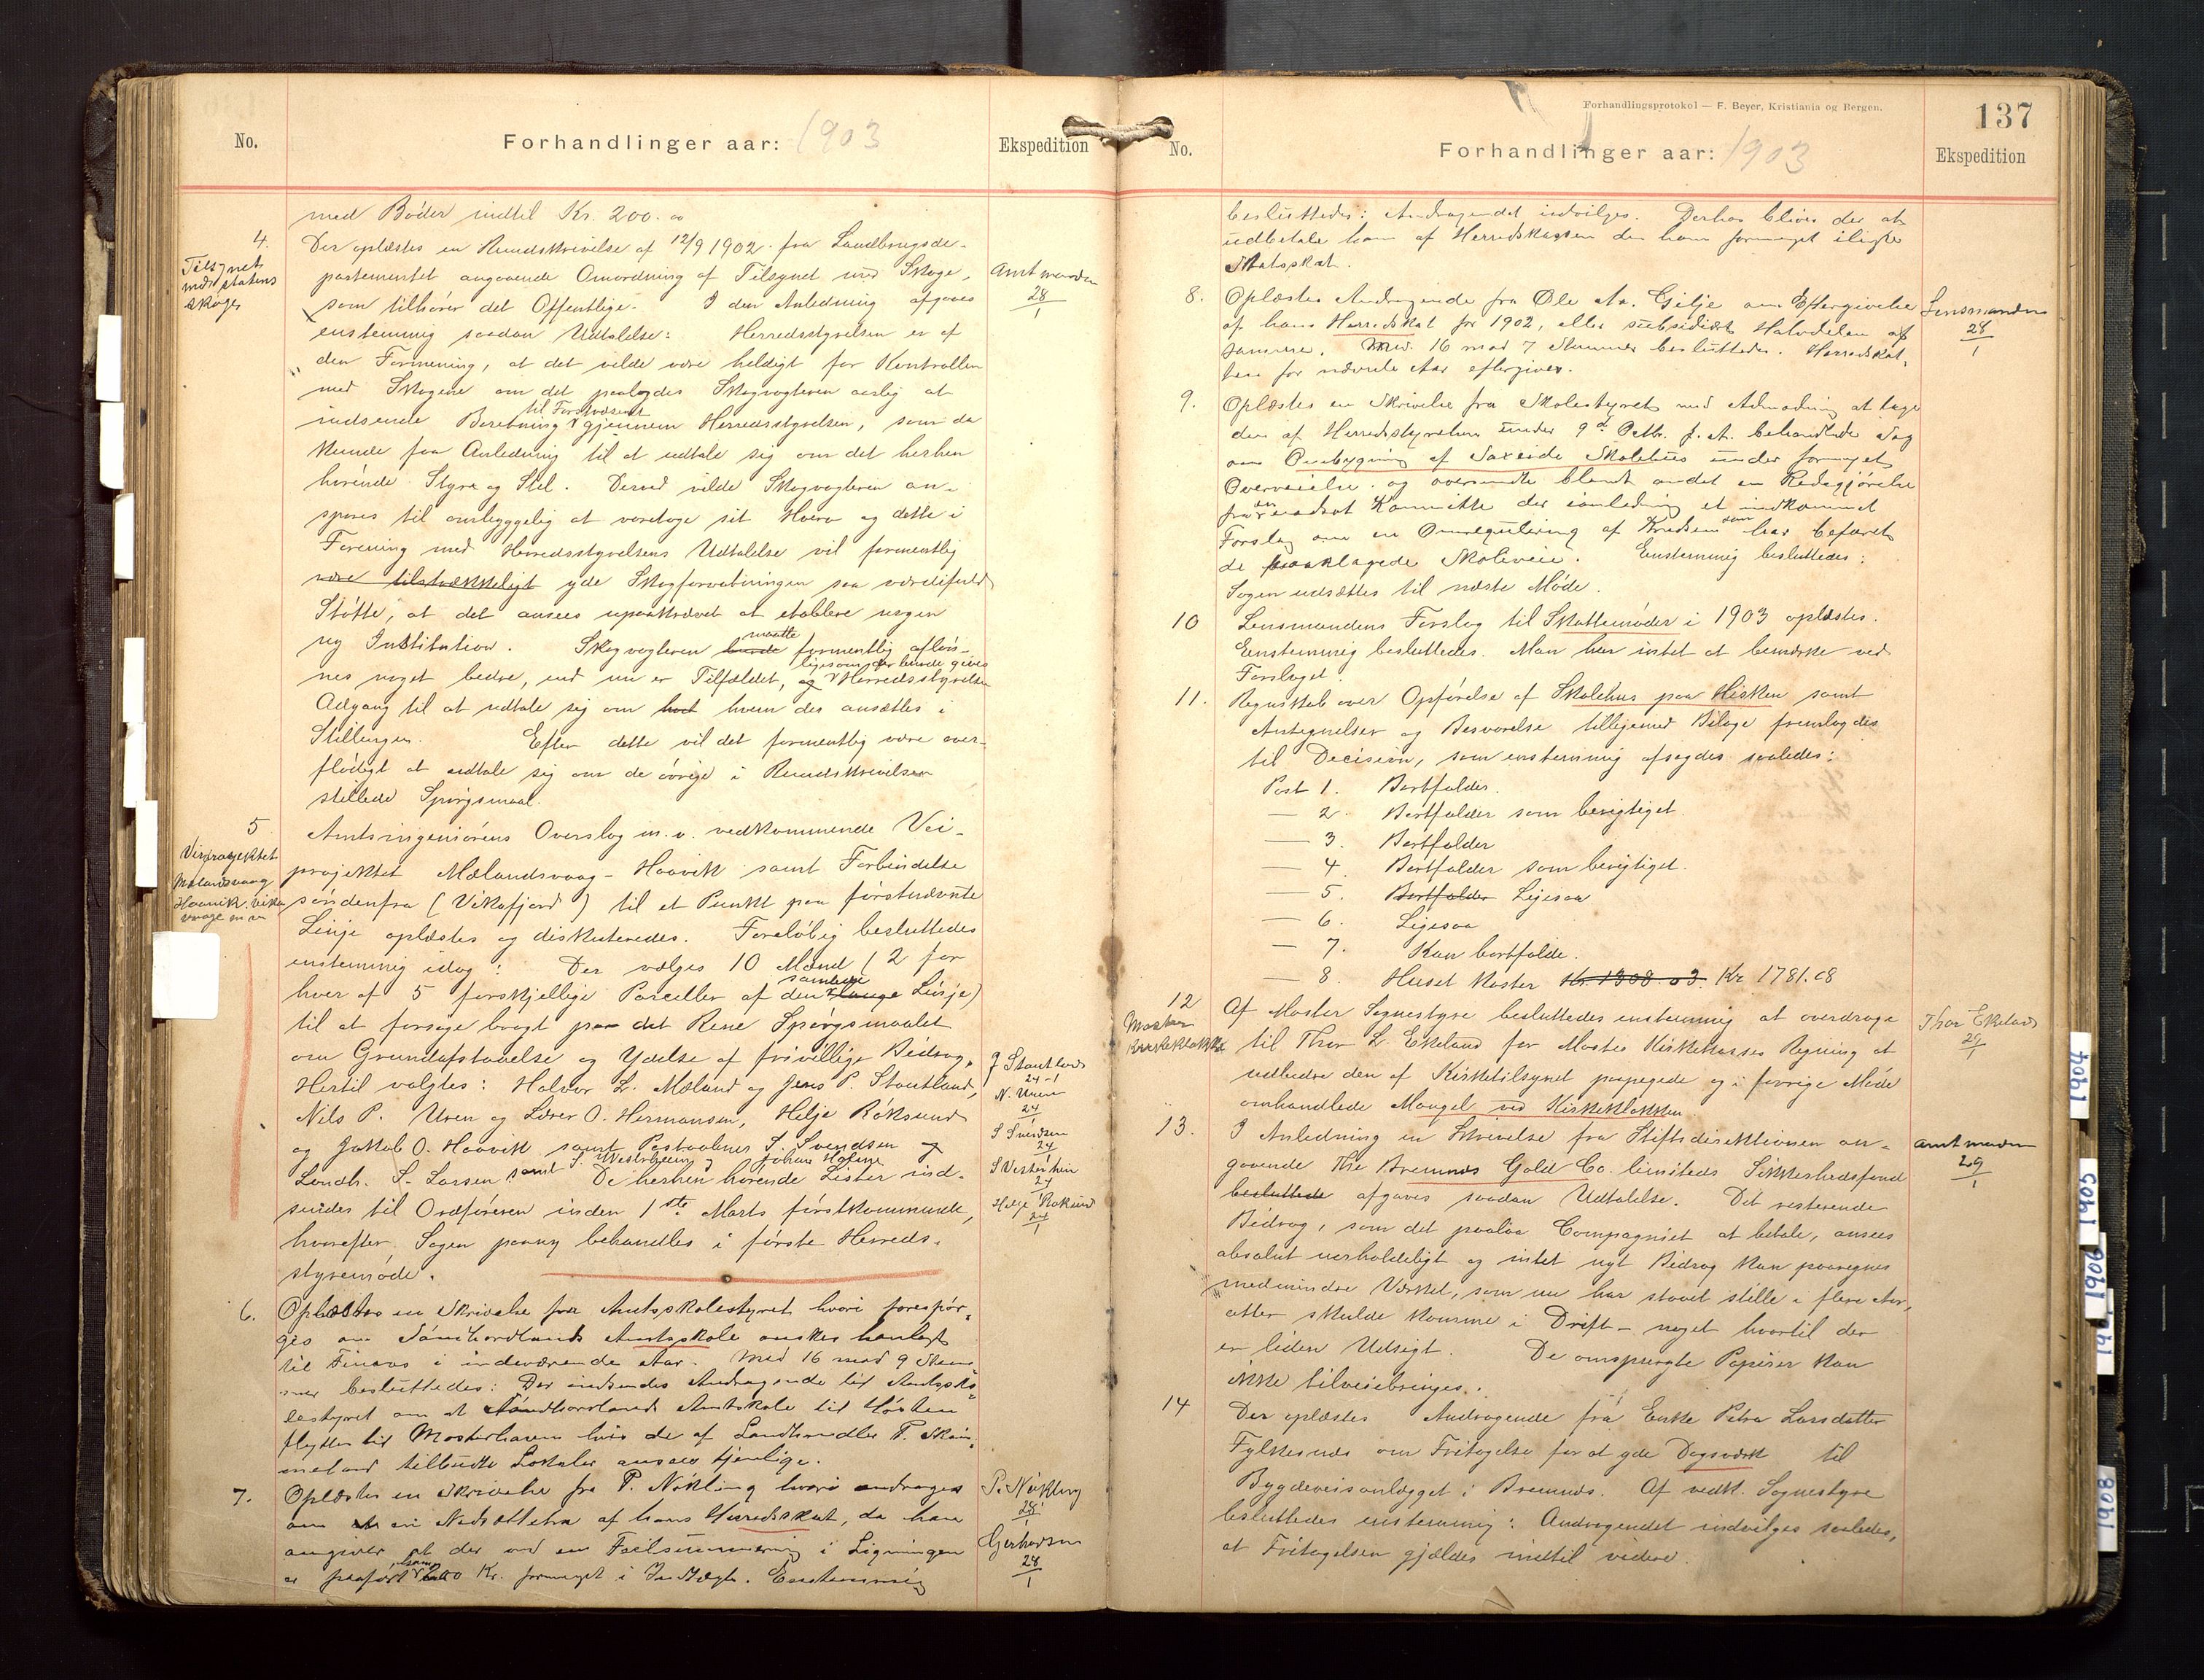 No.
Forhandlinger aar: 1903
Ekspedition
med Bøder indtil Kr. 200.00
4.
Tilsynet
med statens
skoge
Der oplæstes en Rundskrivelse af 12/9 1902 fra Landbrugsde-
partementet angaaende Omordning af Tilsynet med Skoge,
Amtmanden
28/1
som tilhører det Offentlige. I den Anledning afgaves
enstemmig saadan Udtalelse: Herredsstyrelsen er af
den Formening, at det vilde være heldigt for Kontrollen
med Skogene om det paalagdes Skogvogteren aarlig at
indsende Beretning til Forstvæsenet gjennem Herredsstyrelsen, som da
kunde faa Anledning til at udtale sig om det herhen
hørende Styre og Stel. Derved vilde Skogvogteren an-
spores til omhyggelig at varetage sit Hverv og dette i
Forening med Herredsstyrelsens Udtalelse vil formentlig
være tilstrækkeligt yde Skogforvaltningen saa værdifuld
Støtte, at det ansees upaakrævet at etablere nogen
ny Institution. Skogvogteren burde maatte formentlig afløn-
nes noget bedre, end nu er Tilfældet, og ligesom der burde gives Herredsstyrelsen
Adgang til at udtale sig om hvem der ansættes i
Stillingen. Efter dette vil det formentlig være over-
flødigt at udtale sig om de øvrige i Rundskrivelsen
stillede Spørgsmaal.
5
Veiprojektet
Mælandsvaag
Haavik. Vika
vaage m v
Amtsingeniørens Overslag m. v. vedkommende Vei-
projektet Mælandsvaag - Haavik samt Forbindelse
søndenfra (Vikafjord) til et Punkt paa førstnævnte
Linje oplæstes og diskuteredes. Foreløbig besluttedes
enstemmig idag: Der vælges 10 Mænd (2 for
hver af 5 forskjellige Parceller af den samlede lange Linje)
til at forsøge bragt paa det Rene Spørgsmaalet
om Grundafstaaelse og Ydelse af frivillige Bidrag.
Hertil valgtes: Halvor L. Mæland og Jens P. Stautland,
J Stautland
24-1
Nils P. Uren og Lærer O. Hermansen, Helje Røksund
N. Uren
24/1
og Jakob O. Haavik samt Postaabner S. Svendsen og
S Svendsen
24/1
Landh. S. Larsen samt S. Westerheim og Johan Holme De herhen hørende Lister ind-
S Vesterhein
24/1
sendes til Ordføreren inden 1ste Marts førstkommende,
Helje Røksund
24/1
hvorefter Sagen paany behandles i første Herreds-
styremøde.
6.
Oplæstes en Skrivelse fra Amtsskolestyret hvori forespør-
ges om Søndhordlands Amtsskole ønskes henlagt
til Finaas i indeværende Aar. Med 16 mod 9 Stem-
mer besluttedes: Der indsendes Andragende til Amtssko-
lestyret om at Søndhordlands Amtskole til Høsten
flyttes til Mosterhavn hvis de af Landhandler T. Skim-
meland tilbudte Lokaler ansees tjenlige.
7.
Oplæstes en Skrivelse fra P. Nøkling hvori andrages
P. Nøkling
28/1
om en Nedsættelse af hans Herredsskat, da han
angiver at der ved en Feilsummering i Ligningen
Gerhardsen
28/1
er paaført ham 200 Kr. formeget i Indtægt. Enstemmig
Forhandlingsprotokol — F. Beyer, Kristiania og Bergen.
137
No.
Forhandlinger aar: 1903
Ekspedition
besluttedes: Andragendet indvilges. Derhos bliver der at
udbetale ham af Herredskassen den ham formeget iligte
Statsskat.
8.
Oplæstes Andragende fra Ole Aa. Gilje om Eftergivelse
Lensmanden
28/1
af hans Herredskat for 1902, eller subsidiært Halvdelen af
samme. Med 16 mod 7 Stemmer besluttedes. Herredskat-
ten for nævnte Aar eftergives.
9.
Oplæstes en Skrivelse fra Skolestyret med Anmodning at tage
den af Herredsstyrelsen under 9de Octbr. f. A. behandlede Sag
om Ombygning af Saxeide Skolehus under fornyet
Overveielse og oversendte blandt andet en Redegjørelse
fra en nedsat Kommitte der ianledning et indkommet
Forslag om en Omregulering af Kredsen som har befaret
de paaklagede Skoleveie. Enstemmig besluttedes:
Sagen udsættes til næste Møde.
10
Lensmandens Forslag til Skattemøder i 1903 oplæstes.
Enstemmig besluttedes. Man har intet at bemærke ved
Forslaget.
11.
Regnskab over Opførelse af Skolehus paa Hisken samt
Antegnelser og Besvarelse tilligemed Bilage fremlagdes
til Decision, som enstemmig afsagdes saaledes:
Post 1. Bortfalder.
— 2. Bortfalder som berigtiget
— 3. Bortfalder
— 4. Bortfalder som berigtiget.
— 5. Bortfalder Ligesaa
— 6. Ligesaa
— 7. Kan bortfalde.
— 8. Huset koster Kr. 1808.03. Kr 1781.08
12
Moster
Kirkeklokke
Af Moster Sognestyre besluttedes enstemmig at overdrage
Thor Ekeland
29/1
til Thor L. Ekeland for Moster Kirkekasses Regning at
udbedre den af Kirketilsynet paapegede og i forrige Møde
omhandlede Mangel ved Kirkeklokken.
13.
I Anledning en Skrivelse fra Stiftsdirektionen an-
Amtmanden
29/1
gaaende The Bremnes Gold Co. limiteds Sikkerhedsfond
besluttede afgaves saadan Udtalelse. Det resterende
Bidrag, som det paalaa Compagniet at betale, ansees
absolut uerholdeligt og intet nyt Bidrag kan paaregnes
medmindre Værket, som nu har staaet stille i flere Aar,
atter skulde komme i Drift - noget hvortil der
er liden Udsigt. De omspurgte Papirer kan
ikke tilveiebringes.
14
Der oplæstes Andragende fra Enke Petra Larsdatter
Fylkesnes om Fritagelse for at yde Dagsværk til
Bygdeveisanlægget i Bremnes. Af vedk. Sognestyre
besluttedes enstemmig: Andragendet indvilges saaledes,
at Fritagelsen gjælder indtil videre.
1904
1905
1906
1908